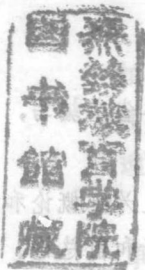 无锡教育学院
图书馆藏